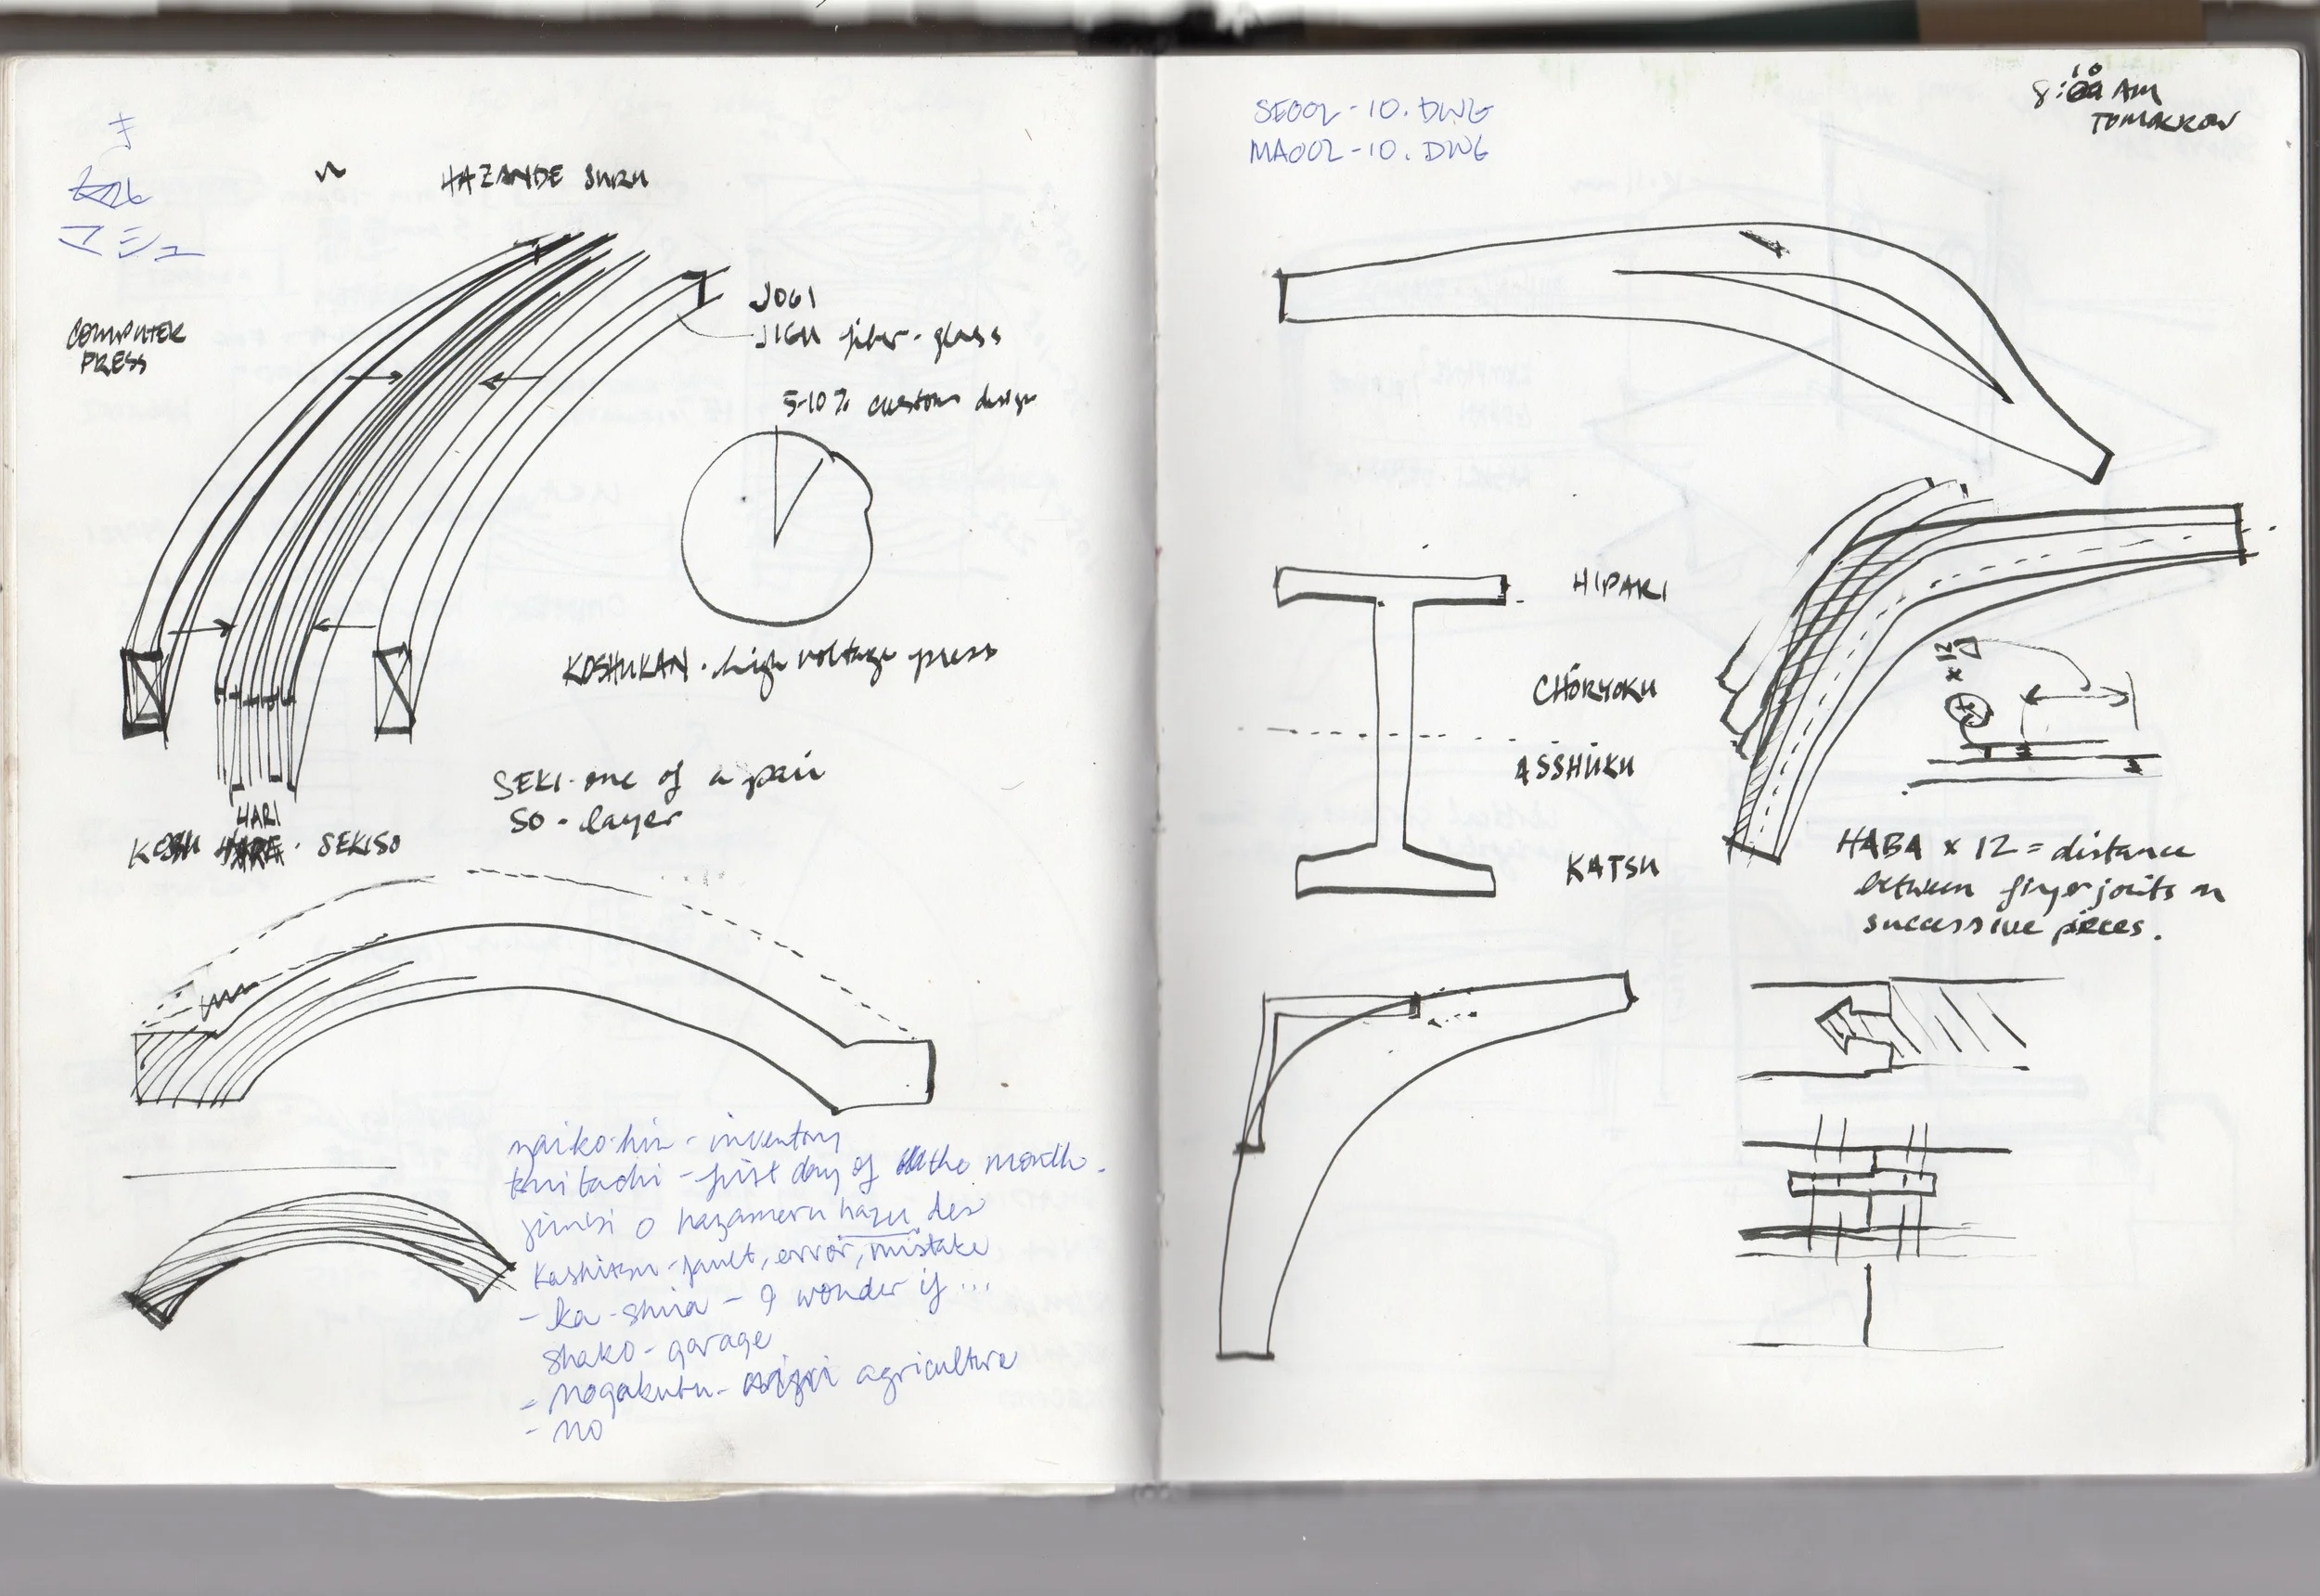 キ
マシュ
HAZANDE SURU
COMPUTER
PRESS
JOGI
JIGU fiber-glass
5-10% custom design
KOSHUKAN - high voltage press
SEKI - one of a pair
SO - layer
HARI
SEKISO
zaiko-hin - inventory
tsuitachi - first day of the month.
o hazameru hazu des
Kashitsu - fault, error, mistake
- ka-shira - I wonder if ...
shako - garage
- nogakubu - agriculture
- no
SE002-10.DWG
MA002-10.DWG
10
8: AM
TOMORROW
HIPARI
CHŌRYOKU
ASSHUKU
KATSU
x 12
HABA x 12 = distance
between finger joints on
successive pieces.